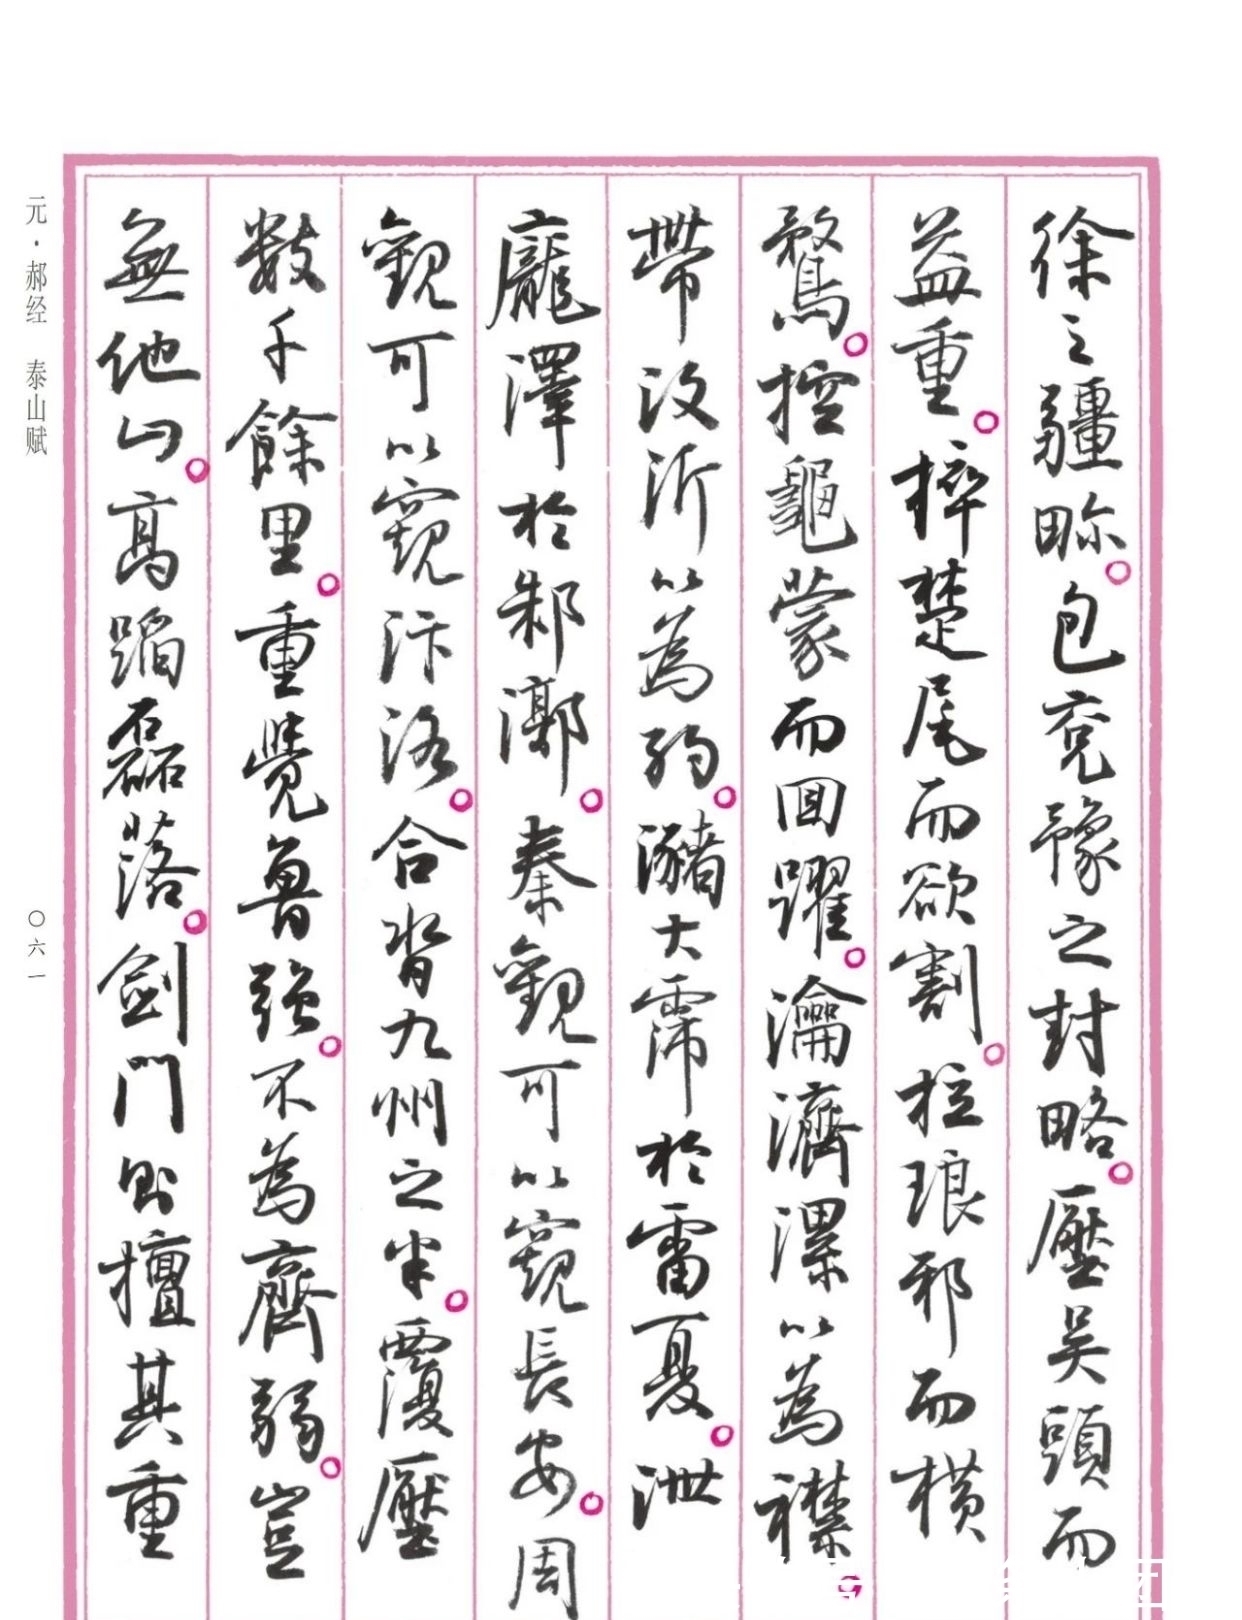 徐之疆畛。包兗豫之封略。壓吳頭而
益重。捽楚尾而欲割。拉琅邪而橫
鶩。控龜蒙而回躍。瀹濟漯以為襟。
帶汶沂以為約。瀦大霈於雷夏。泄
龐澤於邾漷。秦觀可以窺長安。周
觀可以窺汴洛。合背九州之半。覆壓
數千餘里。重覺魯強。不為齊弱。豈
無他山。高蹈磊落。劍門則擅其重
元·郝经 泰山赋
〇六一